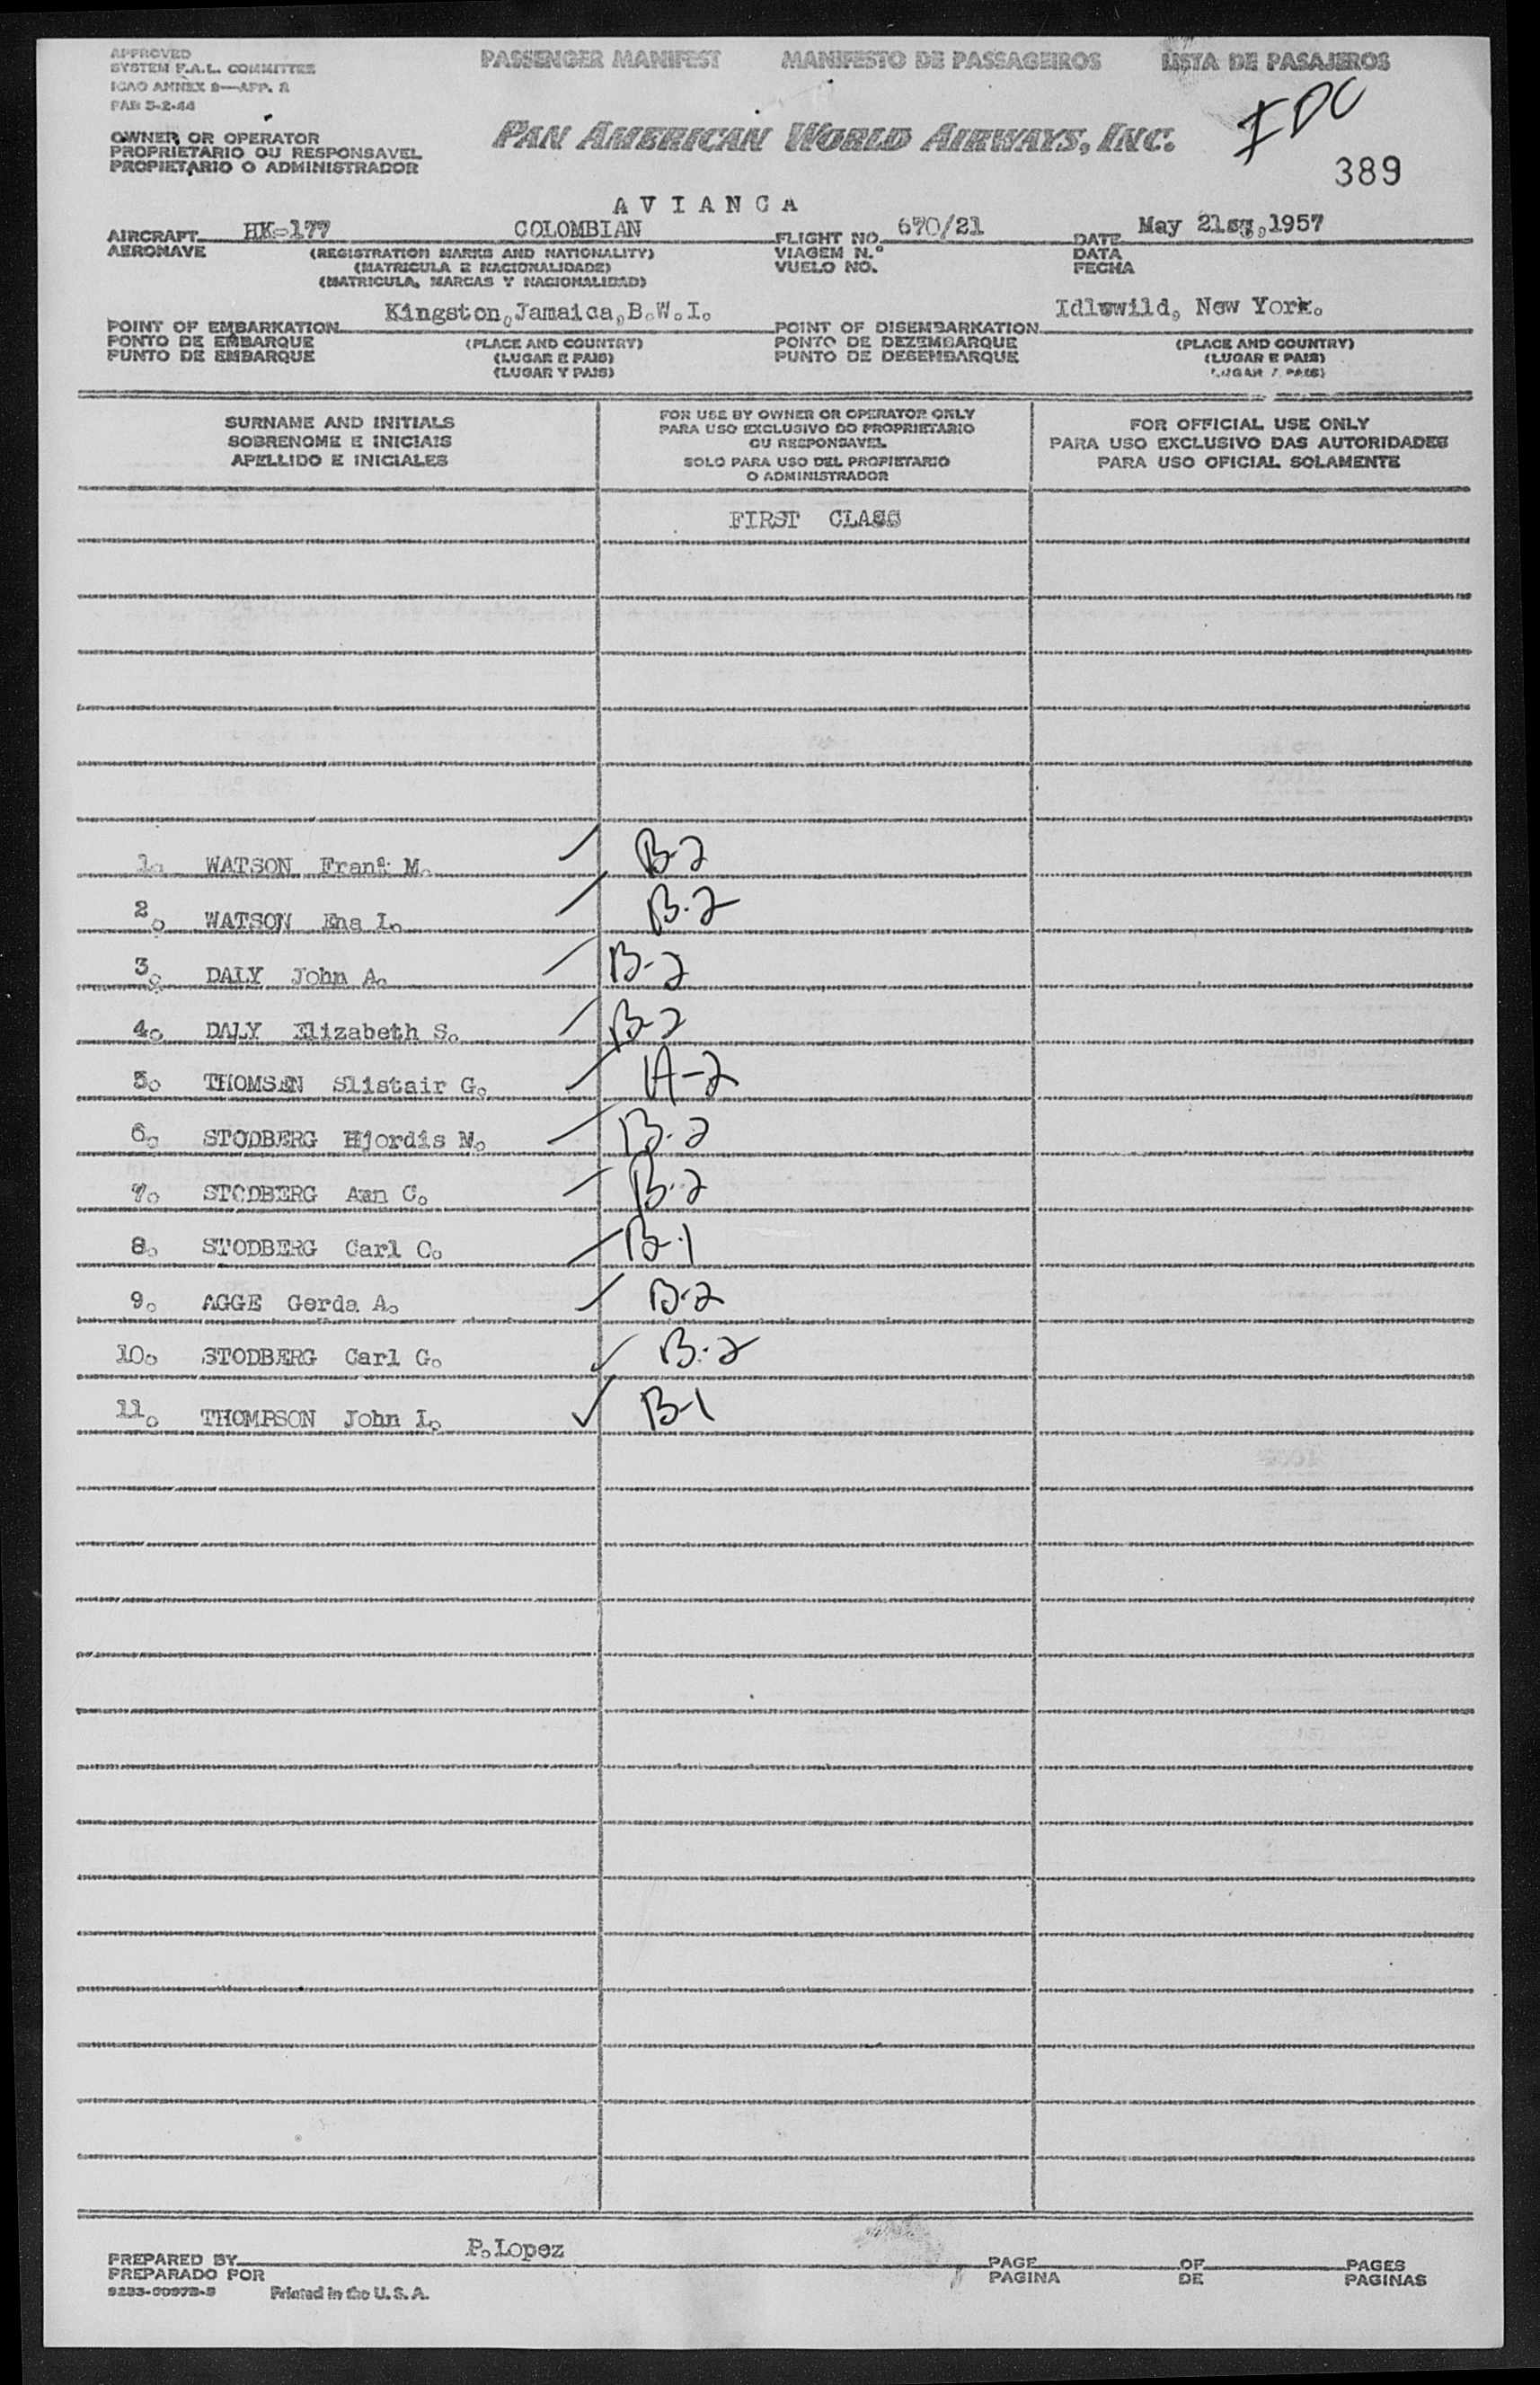 APPROVED
SYSTEM F.A.L. COMMITTEE
ICAO ANNEX 9—APP. 2
PAB 5-2-44
PASSENGER MANIFEST MANIFESTO DE PASSAGEIROS LISTA DE PASAJEROS
OWNER OR OPERATOR
PROPRIETARIO OU RESPONSAVEL
PROPIETARIO O ADMINISTRADOR
PAN AMERICAN WORLD AIRWAYS, INC.
389
AVIANCA
AIRCRAFT HK-177 COLOMBIAN FLIGHT NO. 670/21 DATE May 21, 1957
AERONAVE (REGISTRATION MARKS AND NATIONALITY) VIAGEM N.º DATA
(MATRICULA E NACIONALIDADE) VUELO NO. FECHA
(MATRICULA, MARCAS Y NACIONALIDAD)
POINT OF EMBARKATION Kingston, Jamaica, B.W.I. POINT OF DISEMBARKATION Idlewild, New York.
PONTO DE EMBARQUE (PLACE AND COUNTRY) PONTO DE DEZEMBARQUE (PLACE AND COUNTRY)
PUNTO DE EMBARQUE (LUGAR E PAIS) PUNTO DE DESEMBARQUE (LUGAR E PAIS)
(LUGAR Y PAIS) (LUGAR Y PAIS)
SURNAME AND INITIALS
SOBRENOME E INICIAIS
APELLIDO E INICIALES
FOR USE BY OWNER OR OPERATOR ONLY
PARA USO EXCLUSIVO DO PROPRIETARIO
OU RESPONSAVEL
SOLO PARA USO DEL PROPIETARIO
O ADMINISTRADOR
FOR OFFICIAL USE ONLY
PARA USO EXCLUSIVO DAS AUTORIDADES
PARA USO OFICIAL SOLAMENTE
FIRST CLASS
1. WATSON Frank M. B-2
2. WATSON Ena I. B-2
3. DALY John A. B-2
4. DALY Elizabeth S. B-2
5. THOMSEN Slistair G. A-2
6. STODBERG Hjordis M. B-2
7. STODBERG Ann C. B-2
8. STODBERG Carl C. B-1
9. AGGE Gerda A. B-2
10. STODBERG Carl G. B-2
11. THOMPSON John I. B-1
PREPARED BY P. Lopez PAGE OF PAGES
PREPARADO POR PAGINA DE PAGINAS
Printed in the U. S. A.